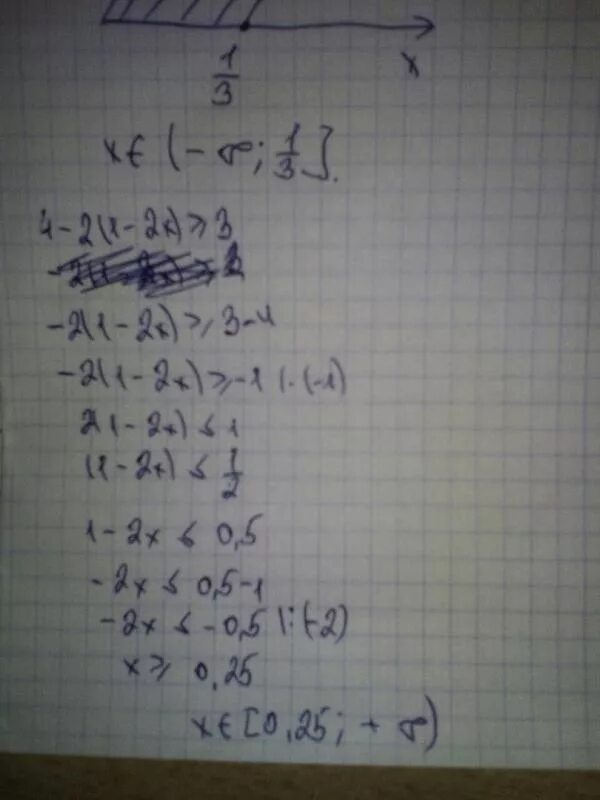 1/3 x
x∈(-∞; 1/3].
4-2(1-2x)≥3
-2(1-2x)≥3-4
-2(1-2x)≥-1 |·(-1)
2(1-2x)≤1
(1-2x)≤1/2
1-2x≤0,5
-2x≤0,5-1
-2x≤-0,5 |:(-2)
x≥0,25
x∈[0,25; +∞)